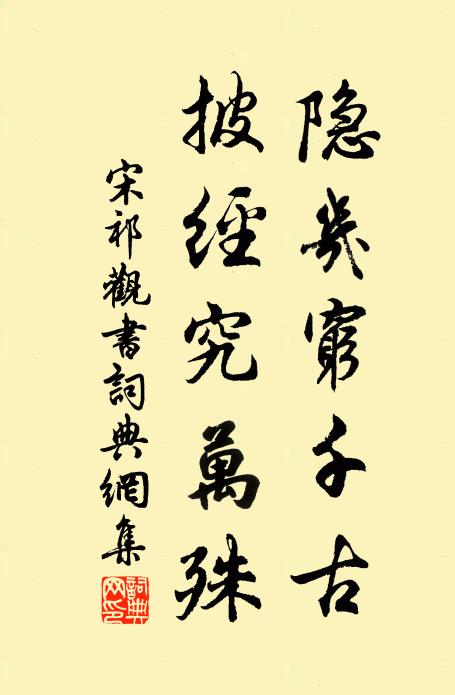 隐幾窮千古
披經究萬殊
宋祁觀書詞典網集
詞典网印